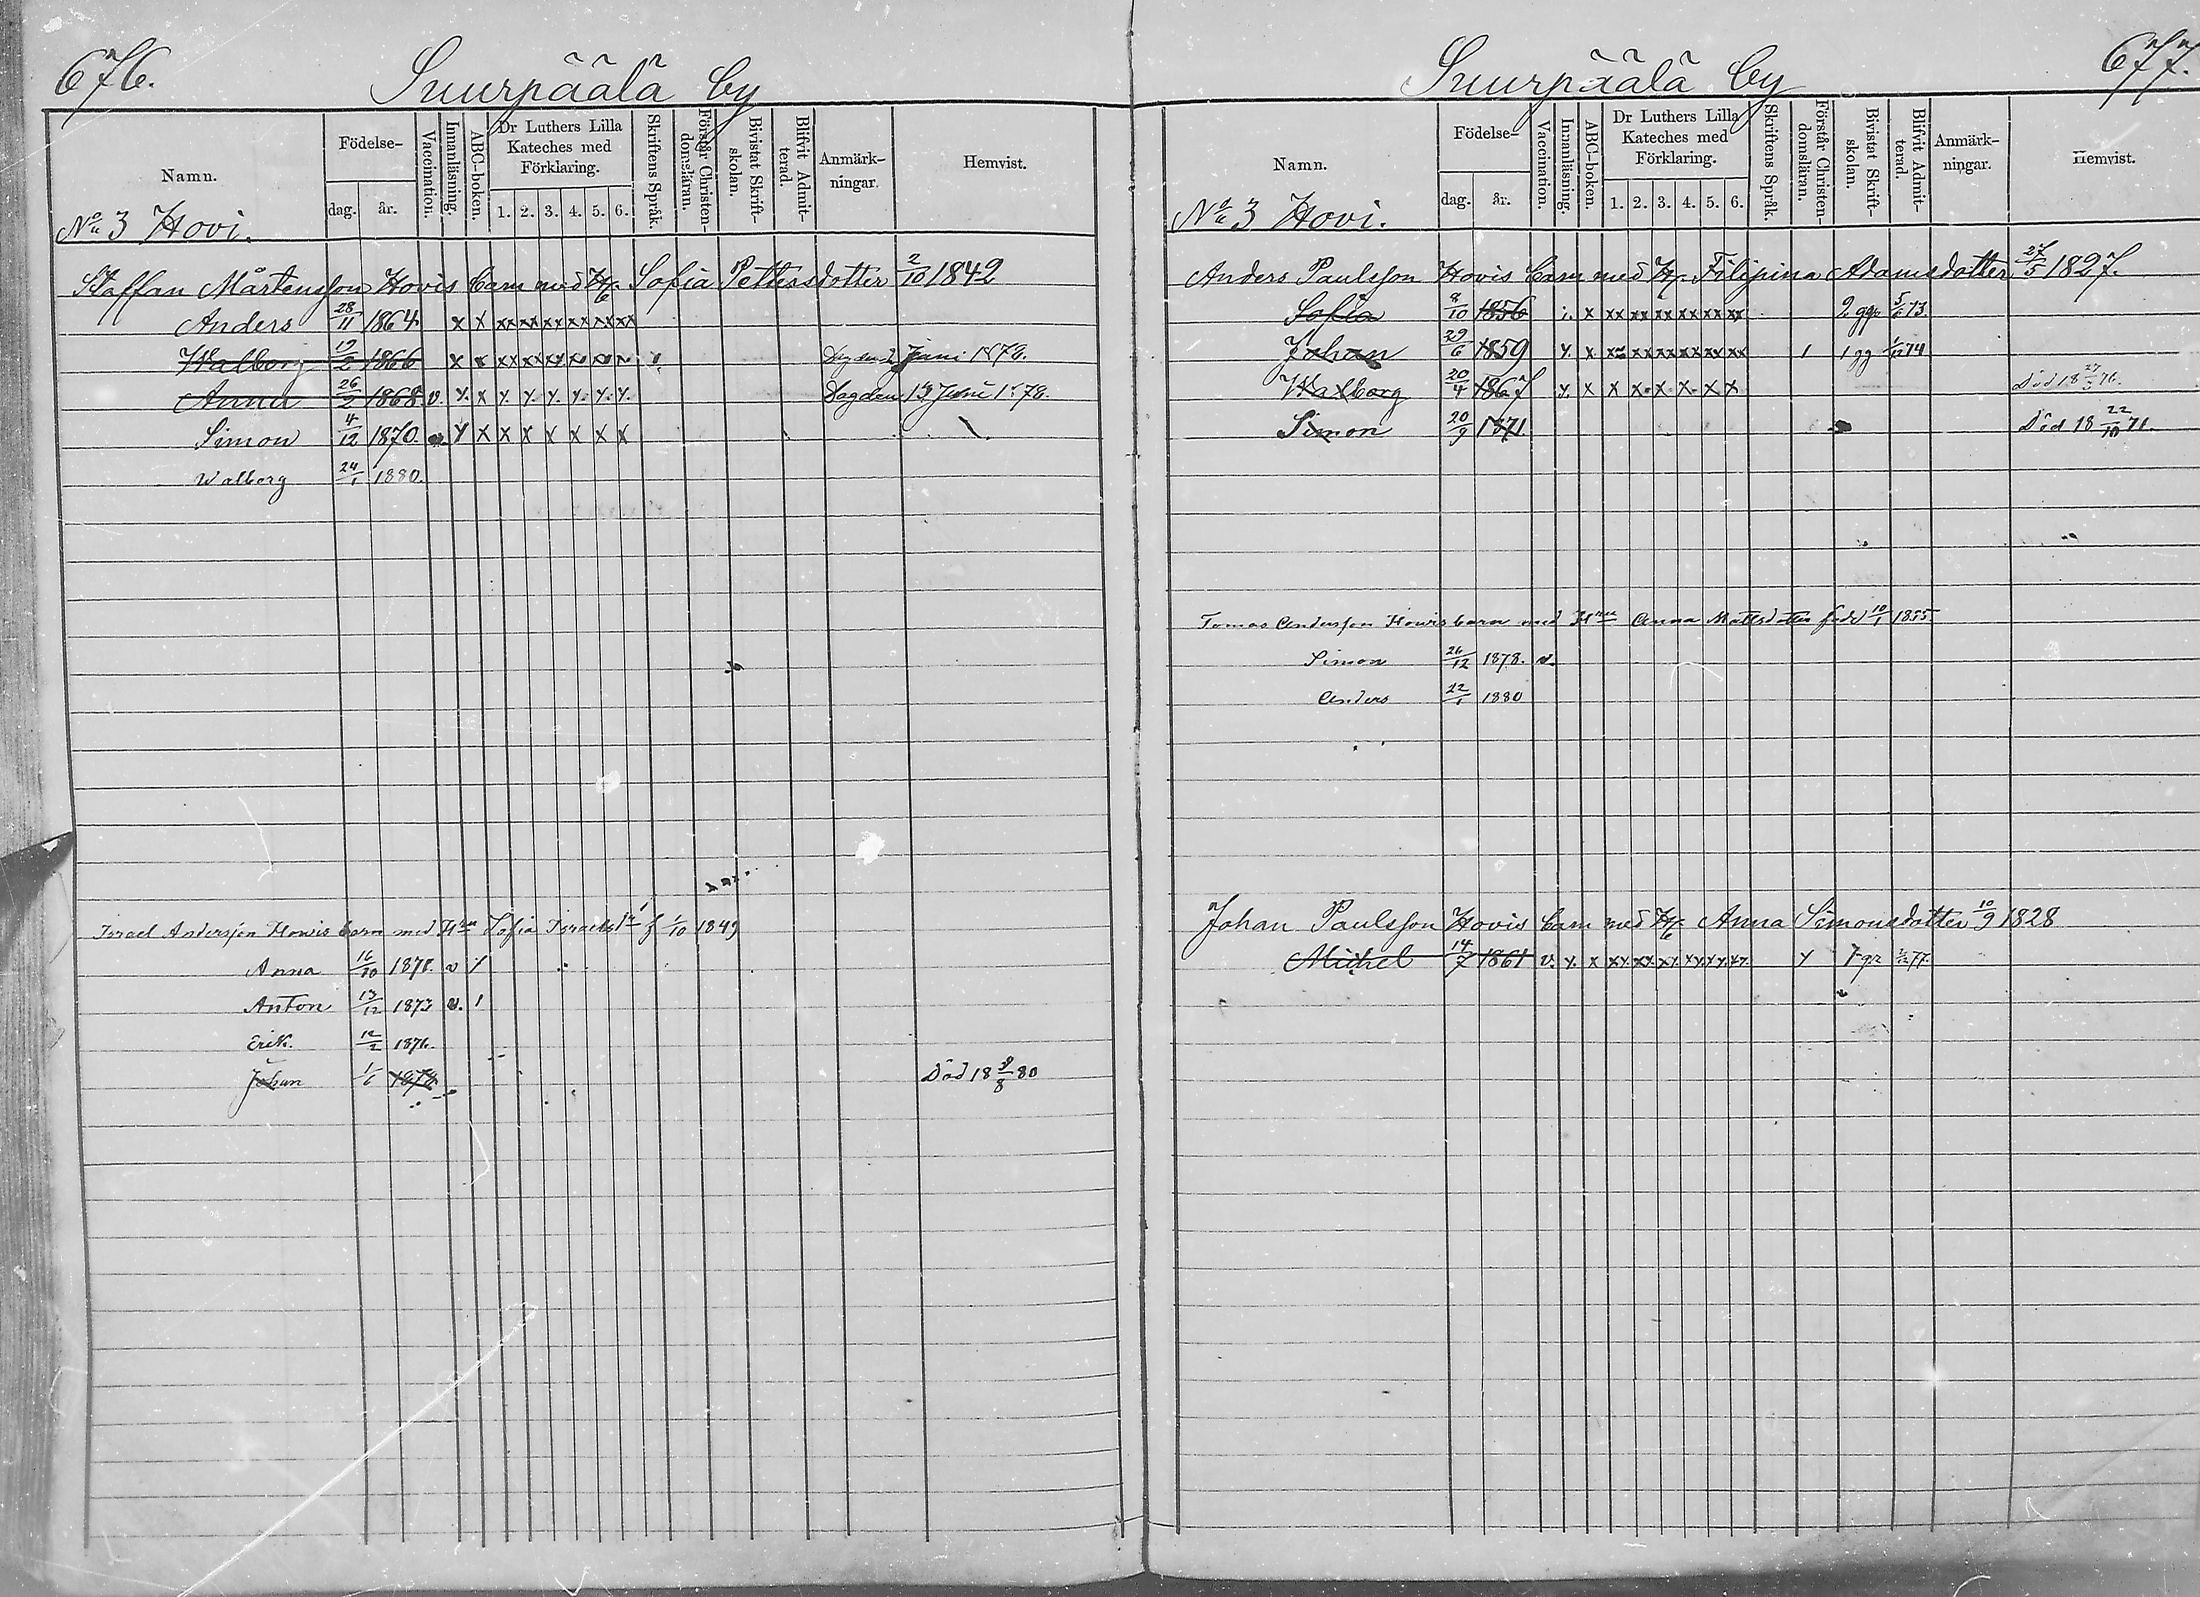 676.
Suurpäälä by
Namn.
Födelse-
dag. år.
Vaccination.
Innanläsning.
ABC-boken.
Dr Luthers Lilla
Kateches med
Förklaring.
1. 2. 3. 4. 5. 6.
Skriftens Språk.
Förstår Christen-
domsläran.
Bivistat Skrift-
skolan.
Blifvit Admit-
terad.
Anmärk-
ningar.
Hemvist.
No 3 Hovi.
Staffan Mårtensson Hovis barn med H. Sofia Pettersdotter 2/10 1842
Anders 28/11 1864 x x xx xx xx xx xx xx
Walborg 19/2 1866 x x xx xx xx
Juni 1878.
Anna 26/2 1868 v. x. x x. x. x. x. x. x. 13 Juni 1878.
Simon 4/12 1870 x x x x x x x x
Walborg 24/1 1880.
Israel Andersson Howis barn med Hru Sofia 1/10 1849
Anna 16/10 187 v /
Anton 13/12 1873 v. /
Erik. 12/2 1876.
Johan 1/6 1878 Död 18 9/8 80
677.
Suurpäälä by
Namn.
Födelse-
dag. år.
Vaccination.
Innanläsning.
ABC-boken.
Dr Luthers Lilla
Kateches med
Förklaring.
1. 2. 3. 4. 5. 6.
Skriftens Språk.
Förstår Christen-
domsläran.
Bivistat Skrift-
skolan.
Blifvit Admit-
terad.
Anmärk-
ningar.
Hemvist.
No 3 Hovi.
Anders Paulsson Hovis barn med H. Filipina Adamsdotter 27/5 1827.
Sofia 8/10 1856 x xx xx xx xx xx xx 2 ggr 5/6 73
Johan 29/6 1859 x. x xx xx xx xx xx xx 1 1 gg 1/12 74
Walborg 20/4 1867 x. x x x. x. x. x x Död 18 76.
Simon 20/9 1871. Död 18 22/10 71.
Tomas Andersson Howis barn med Hru Anna Mattsdotter född 10/1 1855
Simon 26/12 1878. v.
Anders 22/1 1880
Johan Paulsson Hovis barn med H. Anna Simonsdotter 10/9 1828
Michel 14/7 1861 v. x. x xx. xx. xx. xx. xx. xx. x 77.